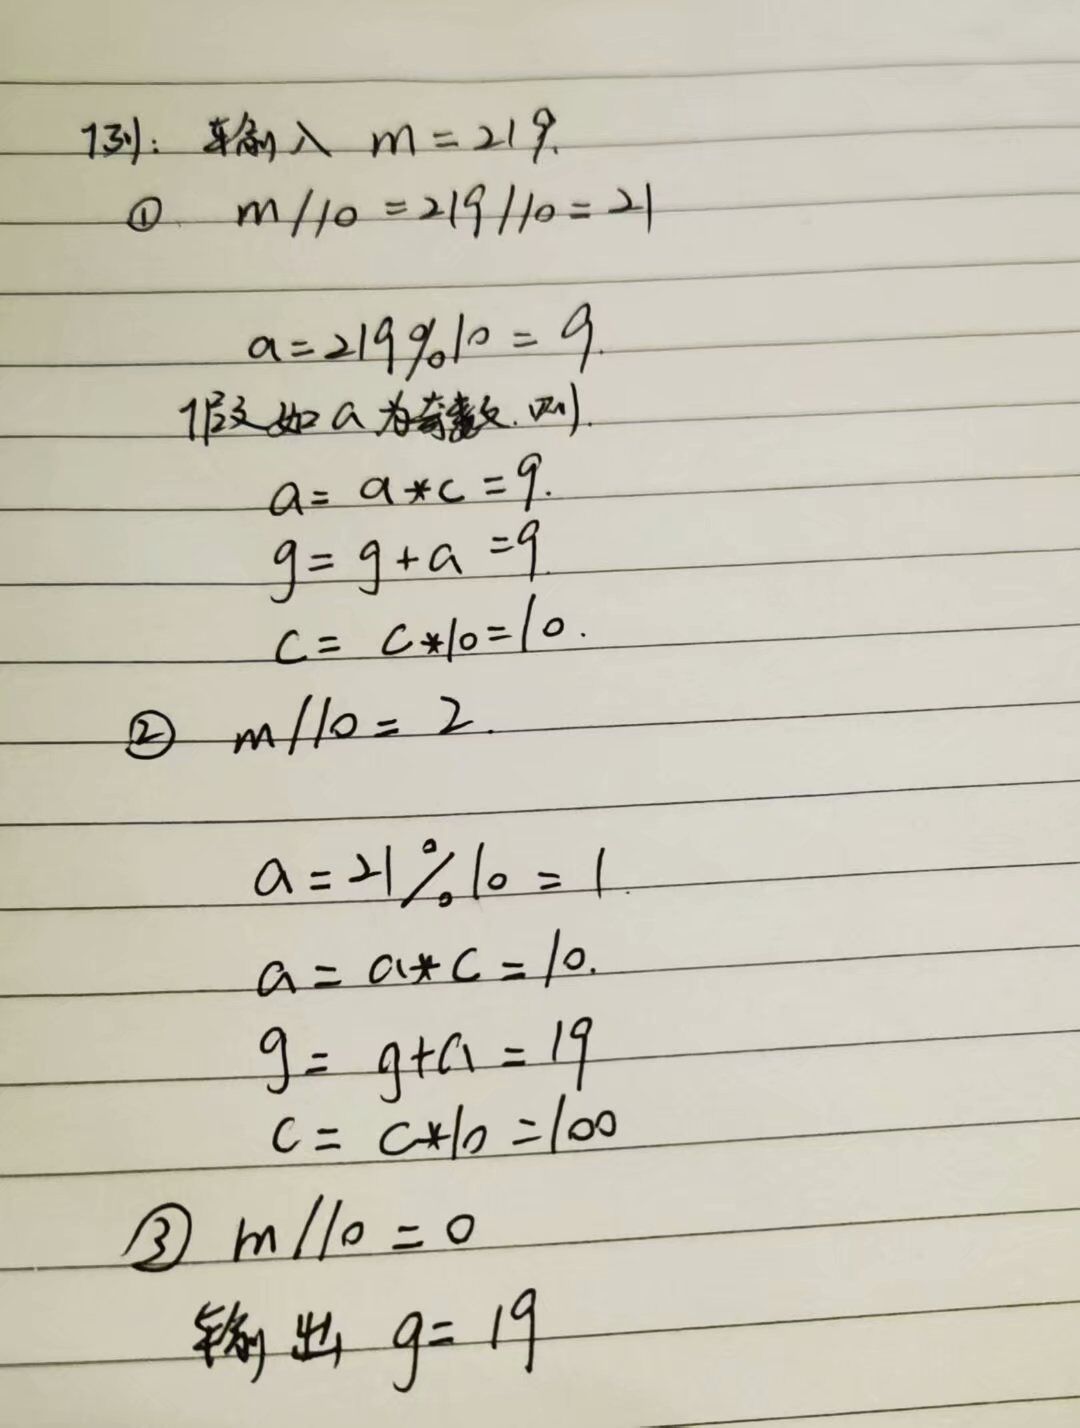 例: 输入 m=219.
① m//10=219//10=21
a=219%10=9.
假如a为奇数.则.
a=a*c=9.
g=g+a=9
c=c*10=10.
② m//10=2.
a=21%10=1.
a=a*c=10.
g=g+a=19
c=c*10=100
③ m//10=0
输出 g=19